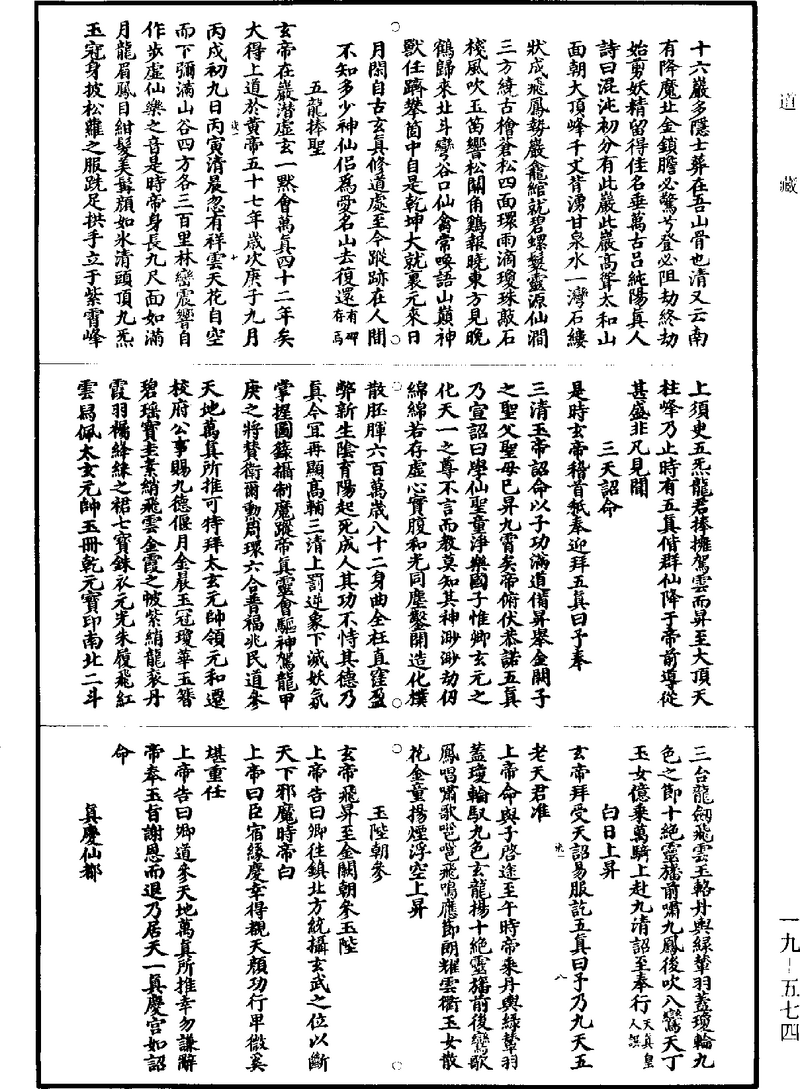 道藏
十六巖多隱士葬在吾山骨也清又云南
有降魔北金鎖膽必驚兮登必阻劫終劫
始剪妖精留得佳名垂萬古呂純陽真人
詩曰混沌初分有此巖此巖高聳太和山
面朝大頂峰千丈背湧甘泉水一灣石縷
狀成飛鳳勢巖龍綰就碧螺鬟靈源仙澗
三方繞古檜蒼松四面環雨滴瓊珠敲石
棧風吹玉笛響松關角鷄報曉東方見晚
鶴歸來北斗彎谷口仙禽常喚語山巔神
獸任躋攀箇中自是乾坤大就裏元來日
月閑自古玄真修道處至今蹤跡在人間
不知多少神仙侶爲愛名山去復還有碑存焉
五龍捧聖
玄帝在巖潛虛玄一默會萬真四十二年矣
大得上道於黃帝五十七年歲次庚子九月
丙戌初九日丙寅清晨忽有祥雲天花自空
而下彌滿山谷四方各三百里林巒震響自
作步虛仙樂之音是時帝身長九尺面如滿
月龍眉鳳目紺髮美髯顏如氷清頭頂九炁
玉冠身披松蘿之服跣足拱手立于紫霄峰
上須臾五炁龍君捧擁駕雲而昇至大頂天
柱峰乃止時有五真偕群仙降于帝前導從
甚盛非凡見聞
三天詔命
是時玄帝稽首祗奉迎拜五真曰予奉
三清玉帝詔命以子功滿道備昇舉金闕子
之聖父聖母已昇九霄矣帝俯伏恭諾五真
乃宣詔曰學仙聖童淨樂國子惟卿玄元之
化天一之尊不言而教莫知其神渺渺劫仞
綿綿若存虛心實腹和光同塵鑿開造化樸
散胚腪六百萬歲八十二身曲全枉直窪盈
弊新生陰育陽起死成人其功不恃其德乃
真今宜再顯高輔三清上罰逆象下滅妖氛
掌握圖籙攝制魔蹤帝真靈會驅神駕龍甲
庚之將贊衛爾動周環六合普福兆民道參
天地萬真所推可特拜太玄元帥領元和遷
校府公事賜九德偃月金晨玉冠瓊華玉簪
碧瑶寶圭素綃飛雲金霞之帔紫綃龍衮丹
霞羽裼絳綵之裙七寶銖衣元光朱履飛紅
雲舄佩太玄元帥玉冊乾元寶印南北二斗
三台龍劒飛雲玉輅丹輿綠輦羽蓋瓊輪九
色之節十絕靈旛前嘯九鳳後吹八鸞天丁
玉女億乘萬騎上赴九清詔至奉行天真皇人撰
白日上昇
玄帝拜受天詔易服訖五真曰予乃九天五
老天君准
上帝命與子啓途至午時帝乘丹輿綠輦羽
蓋瓊輪馭九色玄龍揚十絕靈旛前後鸞歌
鳳唱嘯歌嗈嗈飛鳴應節朗耀雲衢玉女散
花金童揚煙浮空上昇
玉陛朝參
玄帝飛昇至金闕朝參玉陛
上帝告曰卿往鎮北方統攝玄武之位以斷
天下邪魔時帝曰
上帝曰臣宿緣慶幸得覩天顏功行卑微奚
堪重任
上帝告曰卿道參天地萬真所推幸勿謙辭
帝奉玉旨謝恩而退乃居天一真慶宮如詔
命
真慶仙都
一九-五七四